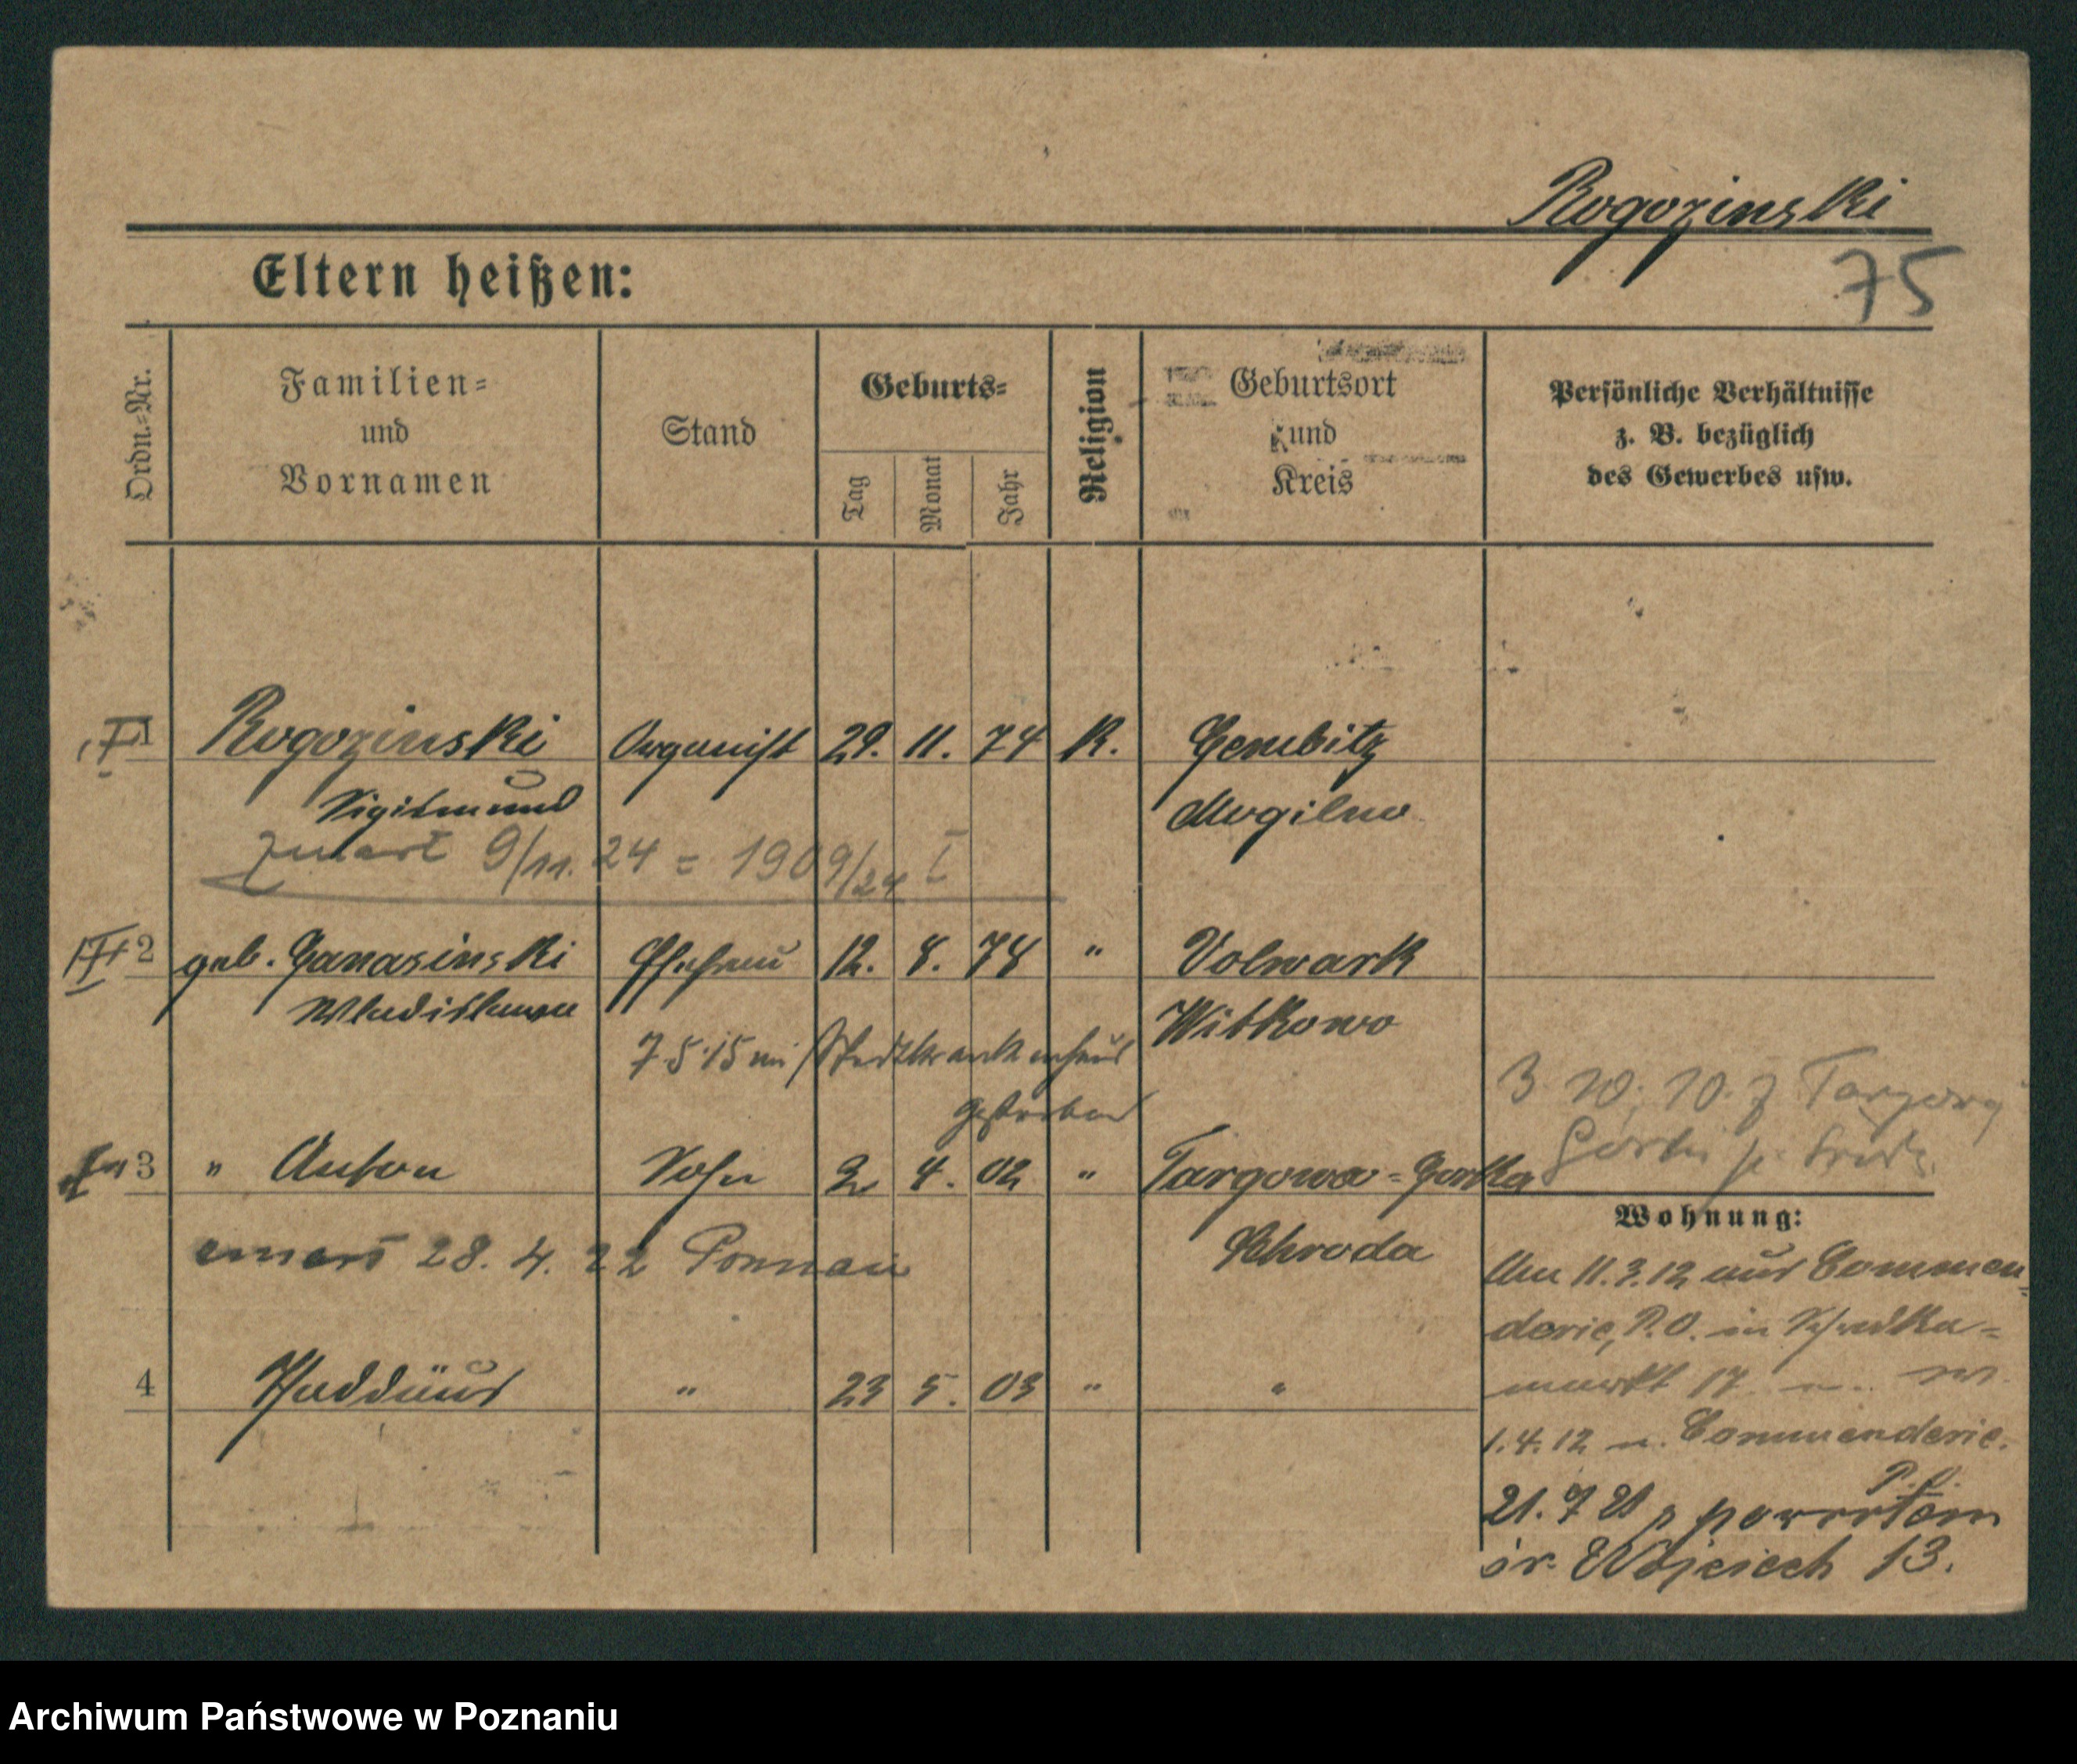 Rogozinski
75
Eltern heißen:
Ordn.=Nr.
Familien=
und
Vornamen
Stand
Geburts=
Tag
Monat
Jahr
Religion
Geburtsort
und
Kreis
Persönliche Verhältnisse
z. B. bezüglich
des Gewerbes usw.
1 Rogozinski Organist 29. 11. 74 K. Gembitz
Sigismund Mogilno
zmarł 9/11. 24 = 1909/24 I
2 geb. Ganasinski Ehefrau 12. 8. 78 " Volwark
Wladislawa Witkowo
7.5.15 im Stadtkrankenhaus
gestorben
3 " Anton Sohn 2 4. 02 " Targowa=Gorka
Schroda
28. 4. 22
4 Thaddäus " 23 5. 03 " "
Wohnung:
Am 11.3.12 aus Commen=
derie, P.O. in Schrodka=
markt 17
1.4.12 n. Commenderie.
P.O.
21. 7 21 z powrotem
śr. Wojciech 13.
Archiwum Państwowe w Poznaniu